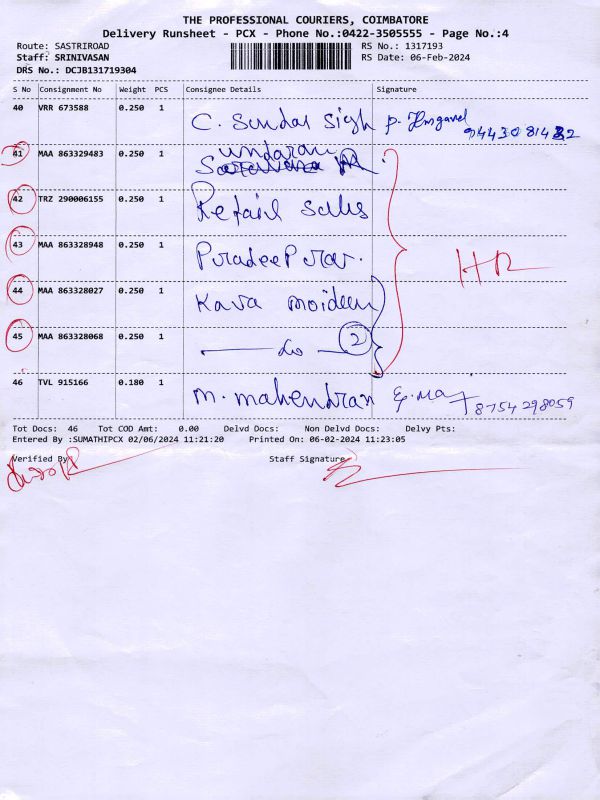 THE PROFESSIONAL COURIERS, COIMBATORE
Delivery Runsheet - PCX - Phone No.:0422-3505555 - Page No.:4
Route: SASTRIROAD RS No.: 1317193
Staff: SRINIVASAN RS Date: 06-Feb-2024
DRS No.: DCJB131719304
S No Consignment No Weight PCS Consignee Details Signature
40 VRR 673588 0.250 1 C. Sundar Sigh P.
41 MAA 863329483 0.250 1
42 TRZ 290006155 0.250 1 Retail Sales
43 MAA 863328948 0.250 1 Pradeep rar.
HR
44 MAA 863328027 0.250 1 Kava moideen
45 MAA 863328068 0.250 1 do 2
46 TVL 915166 0.180 1 M. Mahendran 8754298059
Tot Docs: 46 Tot COD Amt: 0.00 Delvd Docs: Non Delvd Docs: Delvy Pts:
Entered By :SUMATHIPCX 02/06/2024 11:21:20 Printed On: 06-02-2024 11:23:05
Verified By Staff Signature